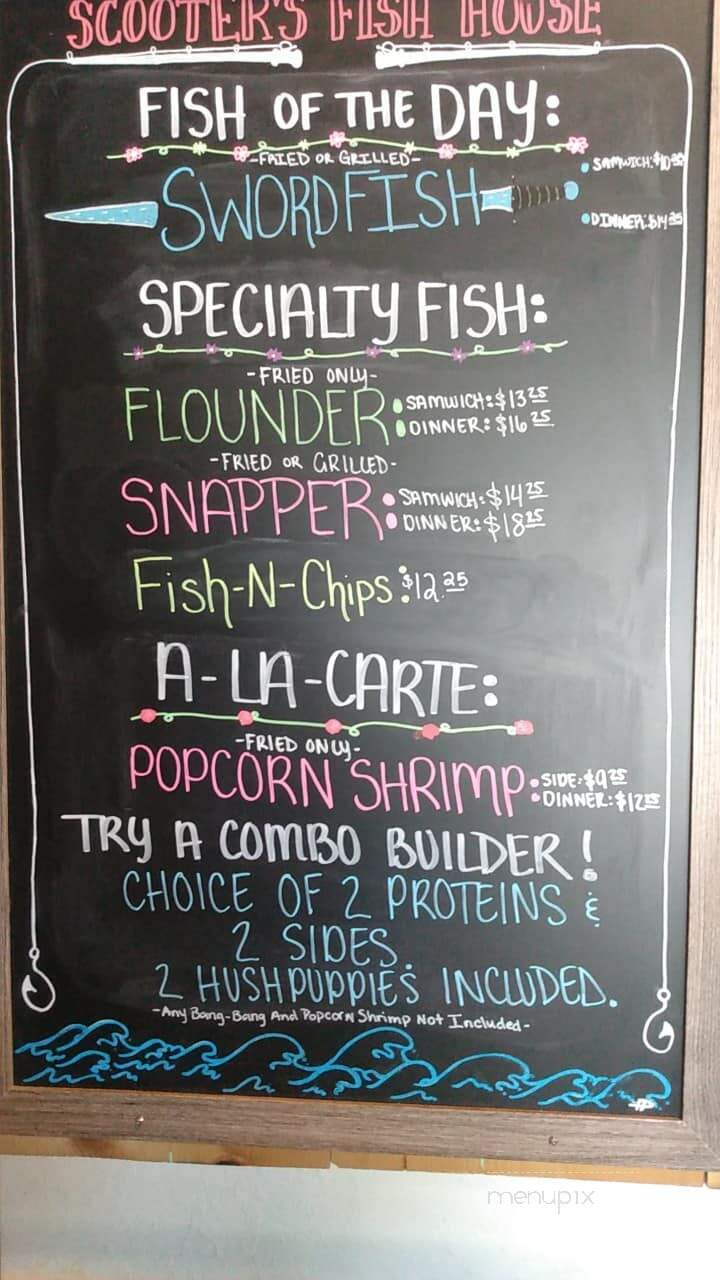 SCOOTER'S FISH HOUSE
FISH OF THE DAY:
-FRIED OR GRILLED-
SWORDFISH
SAMWICH:
DINNER:
SPECIALTY FISH:
-FRIED ONLY-
FLOUNDER: SAMWICH: $13 25
DINNER: $16 25
-FRIED OR GRILLED-
SNAPPER: SAMWICH: $14 25
DINNER: $18 25
Fish-N-Chips: $12.25
A-LA-CARTE:
-FRIED ONLY-
POPCORN SHRIMP: SIDE: $9 25
DINNER:
TRY A COMBO BUILDER!
CHOICE OF 2 PROTEINS &
2 SIDES.
2 HUSHPUPPIES INCLUDED.
-Any Bang-Bang And Popcorn Shrimp Not Included-
menupix